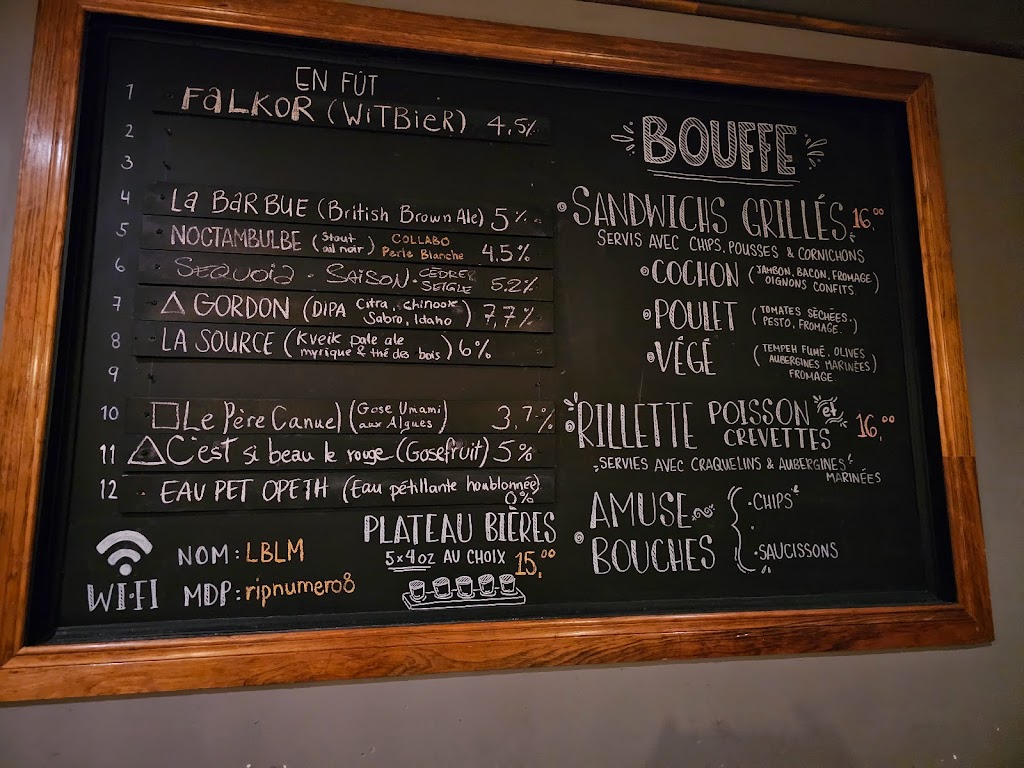 EN FÛT
1 FALKOR (WITBIER) 4,5%
2
3
4 LA BARBUE (British Brown Ale) 5%
5 NOCTAMBULBE (Stout ail noir) COLLABO Perle Blanche 4,5%
6 SEQUOIA - SAISON - CÈDRE SEIGLE 5.2%
7 GORDON (DIPA Citra, Chinook Sabro, Idaho) 7,7%
8 LA SOURCE (Kveik pale ale myrique & thé des bois) 6%
9
10 Le Père Canuel (Gose Umami aux Algues) 3,7%
11 C'est si beau le rouge (Gosefruit) 5%
12 EAU PET OPETH (Eau pétillante houblonnée) 0%
WI-FI
NOM : LBLM
MDP : ripnumero8
PLATEAU BIÈRES
5x4oz AU CHOIX 15,00
BOUFFE
SANDWICHS GRILLÉS 16,00
SERVIS AVEC CHIPS, POUSSES & CORNICHONS
COCHON (JAMBON, BACON, FROMAGE
OIGNONS CONFITS)
POULET (TOMATES SÉCHÉES,
PESTO, FROMAGE)
VÉGÉ (TEMPEH FUMÉ, OLIVES
AUBERGINES MARINÉES
FROMAGE)
RILLETTE POISSON et CREVETTES 16,00
SERVIES AVEC CRAQUELINS & AUBERGINES
MARINÉES
AMUSE
BOUCHES
CHIPS
SAUCISSONS